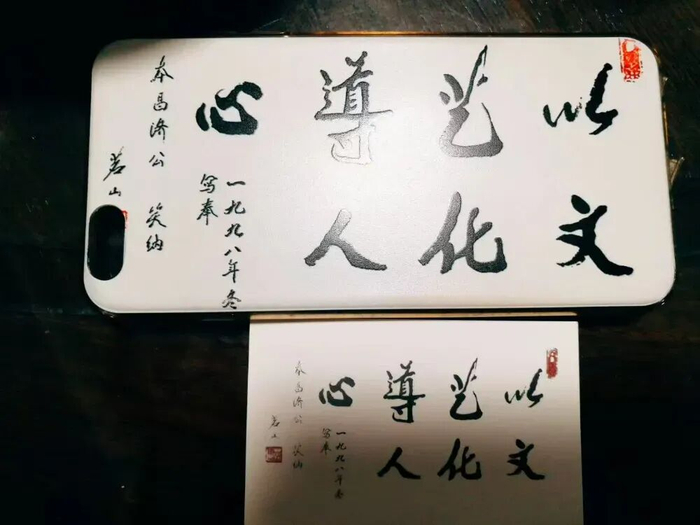 以文
艺化
導人
心
一九九八年冬
写奉
本昌济公 笑纳
茗山
以文
艺化
導人
心
一九九八年冬
写奉
本昌济公 笑纳
茗山